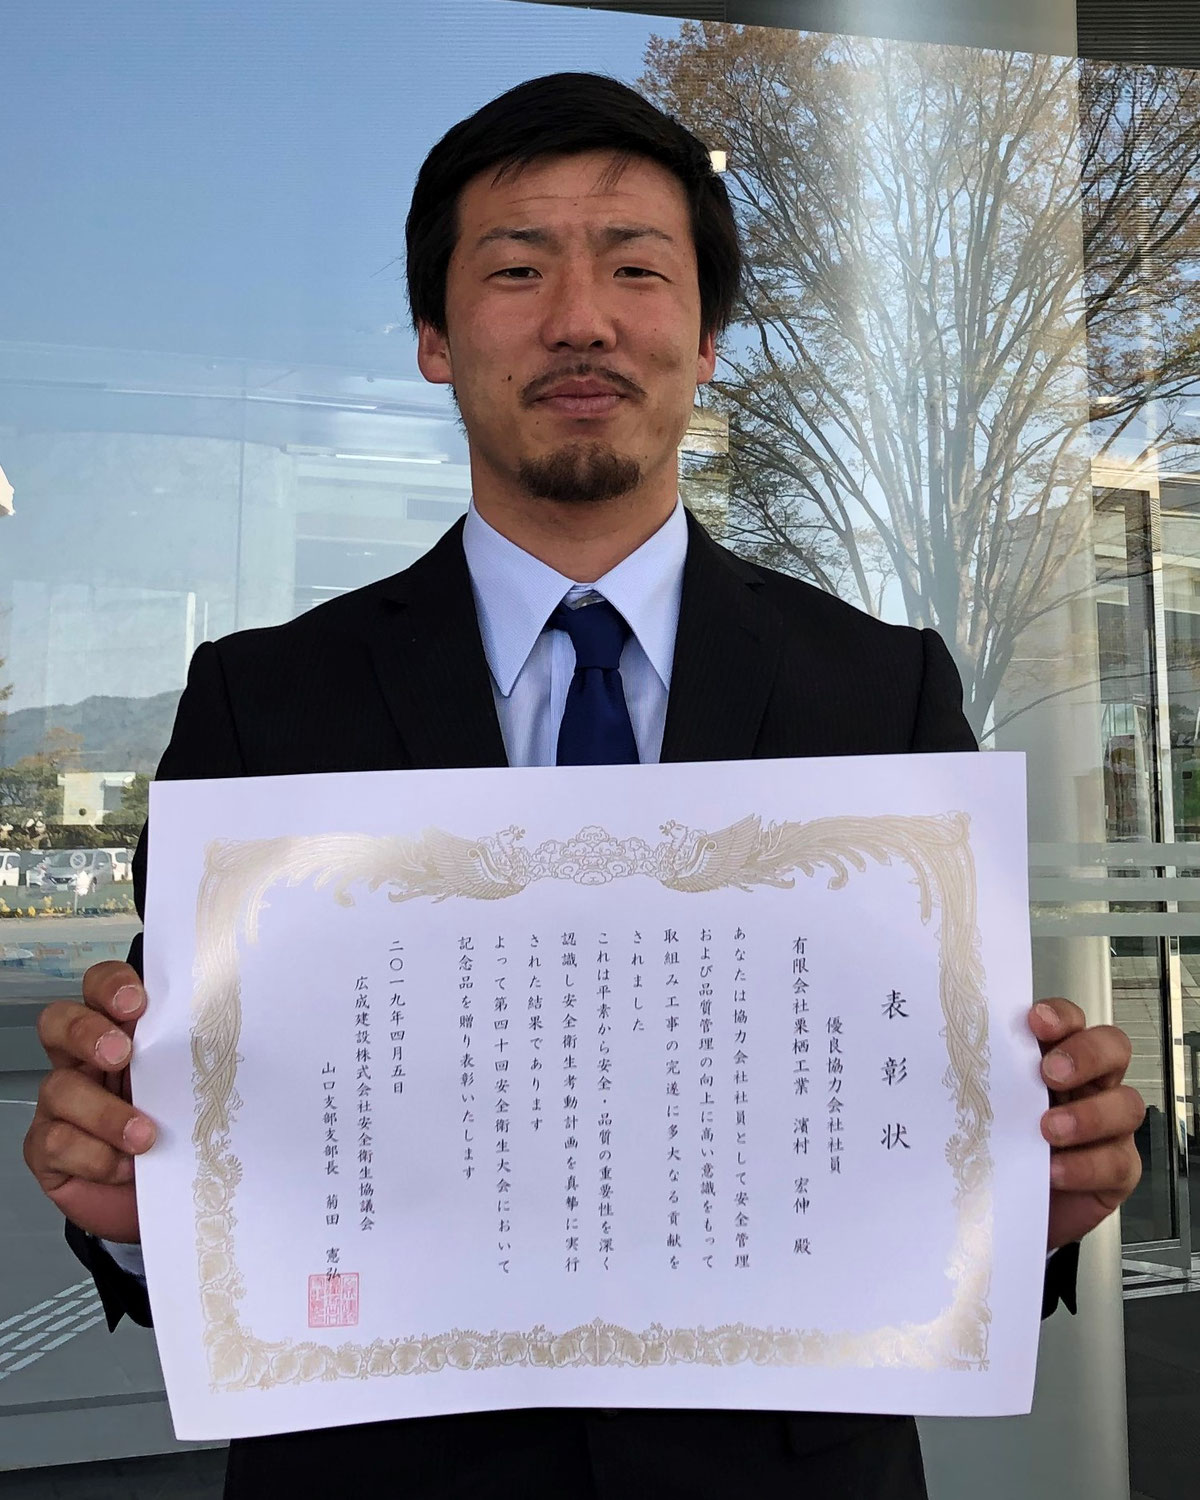 表彰状
優良協力会社社員
有限会社栗栖工業 濱村 宏伸 殿
あなたは協力会社社員として安全管理
および品質管理の向上に高い意識をもって
取組み工事の完遂に多大なる貢献を
されました
これは平素から安全・品質の重要性を深く
認識し安全衛生考動計画を真摯に実行
された結果であります
よって第四十回安全衛生大会において
記念品を贈り表彰いたします
二〇一九年四月五日
広成建設株式会社安全衛生協議会
山口支部支部長 菊田 憲弘